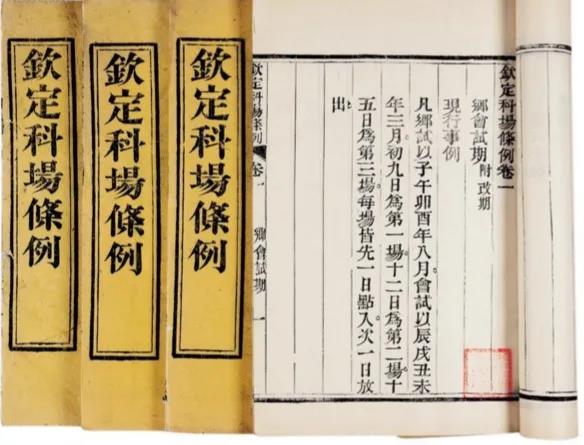 欽定科場條例卷一
鄉會試期 附改期
現行事例
凡鄉試以子午卯酉年八月會試以辰戌丑未
年三月初九日為第一場。十二日為第二場。十
五日為第三場。每場皆先一日點入次一日放
出
欽定科場條例 卷一 鄉會試期 一
欽定科場條例
欽定科場條例
欽定科場條例